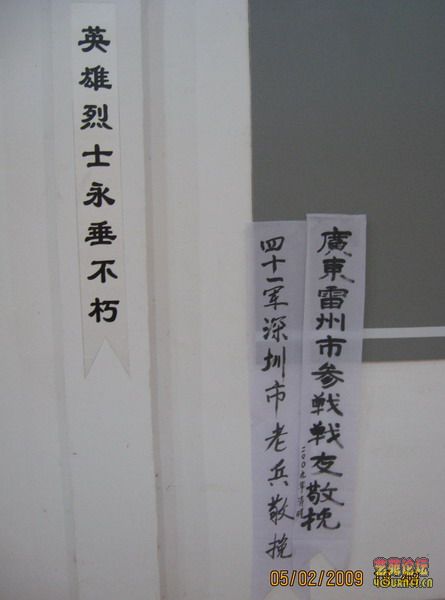 英雄烈士永垂不朽
廣東雷州市参戦戦友敬挽
二00九年清明
四十一军深圳市老兵敬挽
05/02/2009
艺苑论坛